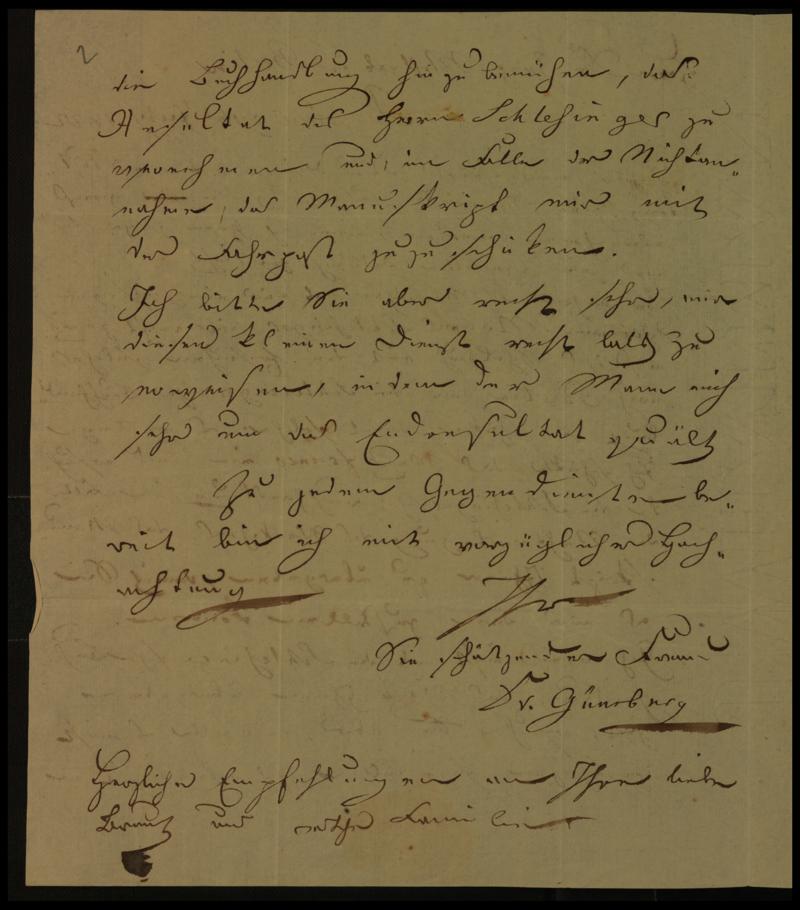 2
die Buchhandlung hinzubemühen, das
Resultat des Herrn Schlesinger zu
vernehmen und, im Falle der Nichtan„
nahme, das Manuskript mir mit
der Fahrpost zuzuschicken.
Ich bitte Sie aber recht sehr, mir
diesen kleinen Dienst recht bald zu
erweisen, indem der Mann mich
sehr um das Endresultat quält
Zu jedem Gegendienste be„
reit bin ich mit vorzüglicher Hoch„
achtung Ihr
Sie schätzender Freund
Dr. Günsburg
Herzliche Empfehlungen an Ihre liebe
Braut und Familie